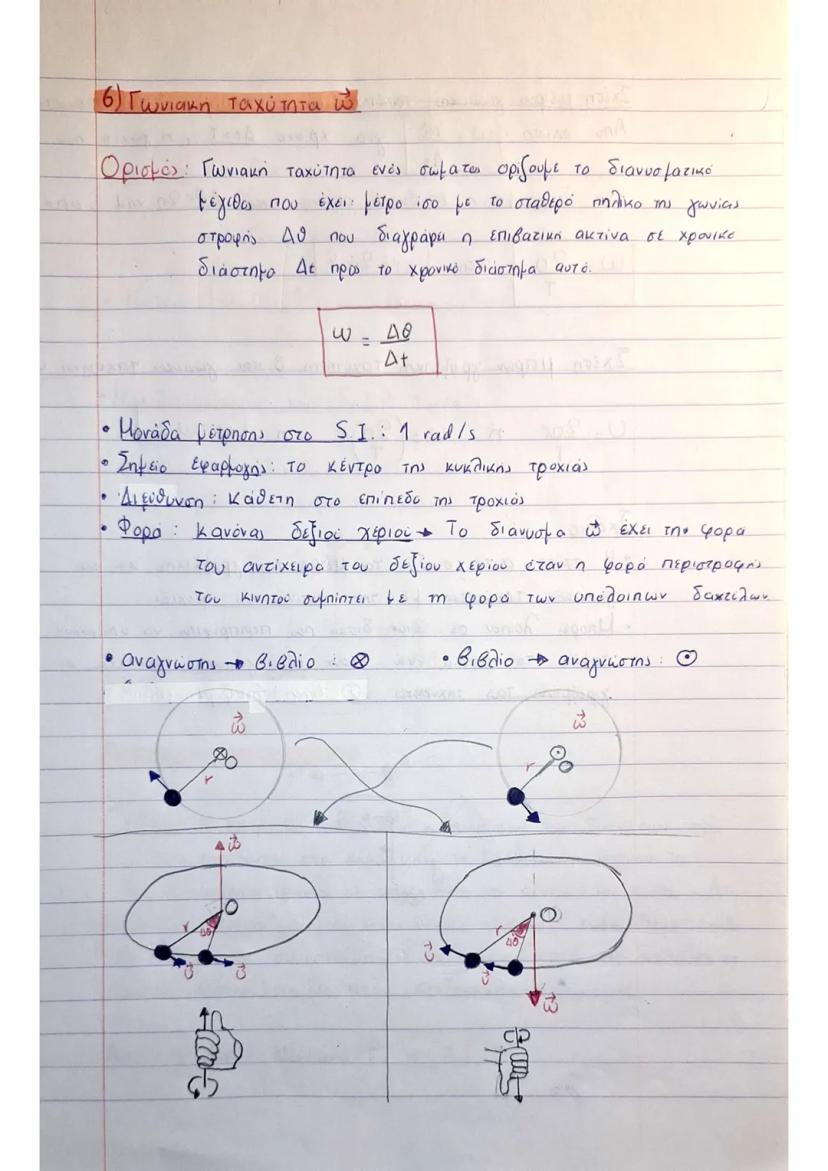 6) Γωνιακή ταχύτητα ω⃗
Ορισμός: Γωνιακή ταχύτητα ενός σώματος ορίζουμε το διανυσματικό
μέγεθος που έχει: μέτρο ίσο με το σταθερό πηλίκο της γωνίας
στροφής Δθ που διαγράφει η επιβατική ακτίνα σε χρονικό
διάστημα Δt προς το χρονικό διάστημα αυτό.
ω = Δθ / Δt
• Μονάδα μέτρησης στο S.I.: 1 rad/s
• Σημείο εφαρμογής: το κέντρο της κυκλικής τροχιάς
• Διεύθυνση: κάθετη στο επίπεδο της τροχιάς
• Φορά: κανόνας δεξιού χεριού → Το διάνυσμα ω⃗ έχει την φορά
του αντίχειρα του δεξιού χεριού όταν η φορά περιστροφής
του κινητού συμπίπτει με τη φορά των υπόλοιπων δακτύλων
• αναγνώστης → βιβλίο : ⊗ • βιβλίο → αναγνώστης : ⊙
ω⃗ ω⃗
r r
ω⃗
r Δθ r Δθ
υ⃗ υ⃗ υ⃗ υ⃗
ω⃗